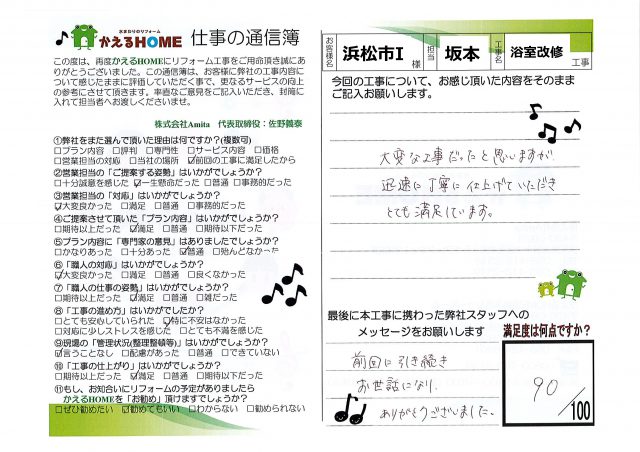 水まわりのリフォーム
かえるHOME 仕事の通信簿
この度は、再度かえるHOMEにリフォーム工事をご用命頂き誠にあ
りがとうございました。この通信簿は、お客様に弊社の工事内容に
ついて感じたままに評価していただく事で、更なるサービスの向上
の参考にさせて頂きます。率直なご意見をご記入いただき、封筒に
入れて担当者へお渡しくださいませ。
株式会社Amita 代表取締役：佐野義泰
①弊社をまた選んで頂いた理由は何ですか?(複数可)
□プラン内容 □評判 □専門性 □サービス内容 □価格
□営業担当の対応 □当社の場所 ☑前回の工事に満足したから
②営業担当の「ご提案する姿勢」はいかがでしょうか?
□十分誠意を感じた ☑一生懸命だった □普通 □事務的だった
③営業担当の「対応」はいかがでしょうか?
☑大変良かった □満足 □普通 □事務的だった
④ご提案させて頂いた「プラン内容」はいかがでしょうか?
□期待以上だった ☑満足 □普通 □期待以下だった
⑤プラン内容に「専門家の意見」はありましたでしょうか?
□かなりあった □十分あった ☑普通 □殆んどなかった
⑥「職人の対応」はいかがでしょうか?
☑大変良かった □満足 □普通 □良くなかった
⑦「職人の仕事の姿勢」はいかがでしょうか?
□期待以上だった ☑満足 □普通 □雑だった
⑧「工事の進め方」はいかがでしたでしょうか?
□とても安心していられた ☑特に不安はなかった
□対応に少しストレスを感じた □とても不満を感じた
⑨現場の「管理状況(整理整頓等)」はいかがでしょうか?
☑言うことなし □配慮があった □普通 □できていない
⑩「工事の仕上がり」はいかがでしょうか?
□期待以上だった ☑満足 □普通 □期待以下だった
⑪もし、お知合いにリフォームの予定がありましたら
かえるHOMEを「お勧め」頂けますでしょうか?
□ぜひ勧めたい ☑勧めてもいい □わからない □勧められない
お客様名 浜松市I 様 担当 坂本 工事名 浴室改修 工事
今回の工事について、お感じ頂いた内容をそのまま
ご記入お願いします。
大変な工事だったと思いますが
迅速に丁寧に仕上げていただき
とても満足しています。
最後に本工事に携わった弊社スタッフへの
メッセージをお願いします
前回に引き続き
お世話になり、
ありがとうございました。
満足度は何点ですか?
90
/100